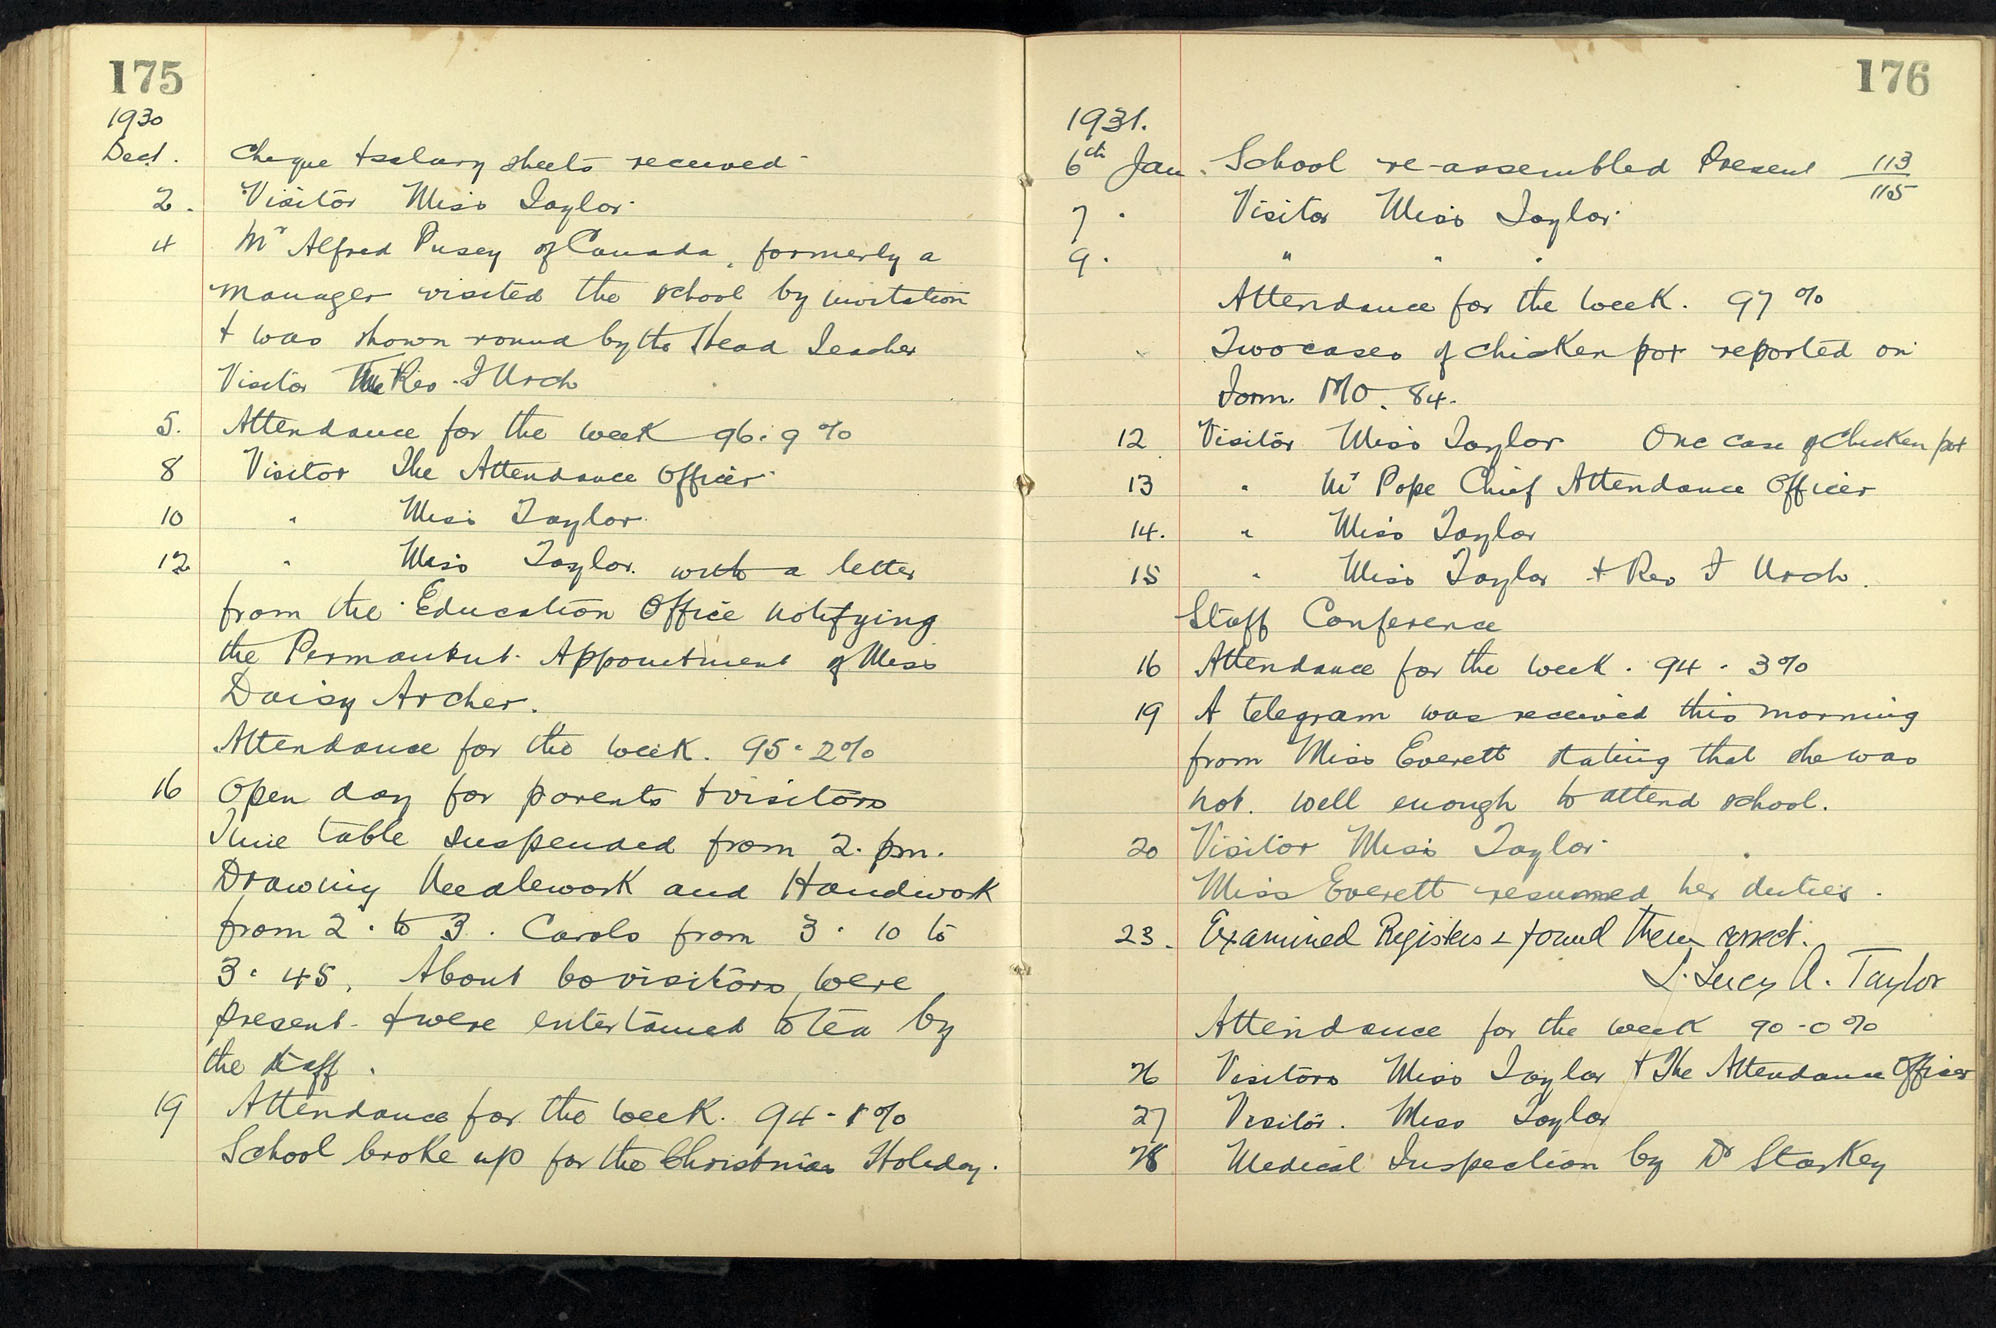 175
1930
Dec 1. Cheque & salary sheets received
2. Visitor Miss Taylor.
4 Mr Alfred Pusey of Canada, formerly a
manager visited the school by invitation
& was shown round by the Head Teacher
Visitor The Rev. J Urch
5. Attendance for the week 96.9 %
8 Visitor The Attendance Officer
10 " Miss Taylor.
12 " Miss Taylor. with a letter
from the Education Office notifying
the Permanent Appointment of Miss
Daisy Archer.
Attendance for the week. 95.2%
16 Open day for parents & visitors
Time table suspended from 2. pm.
Drawing Needlework and Handwork
from 2. to 3. Carols from 3.10 to
3.45. About 60 visitors were
present & were entertained to tea by
the staff.
19 Attendance for the week. 94.1%
School broke up for the Christmas Holiday.
176
1931.
6th Jan. School re-assembled Present 113/115
7. Visitor Miss Taylor.
9. " " "
Attendance for the week. 97 %
Two cases of chicken pox reported on
Form. MO. 84.
12 Visitor Miss Taylor One case of Chicken pox
13 " Mr Pope Chief Attendance Officer
14. " Miss Taylor
15 " Miss Taylor & Rev J Urch.
Staff Conference
16 Attendance for the week. 94.3%
19 A telegram was received this morning
from Miss Everett stating that she was
not. well enough to attend school.
20 Visitor Miss Taylor.
Miss Everett resumed her duties.
23. Examined Registers & found them correct.
L. Lucy A. Taylor
Attendance for the week 90.0%
26 Visitors Miss Taylor & The Attendance Officer
27 Visitor. Miss Taylor
28 Medical Inspection by Dr Starkey